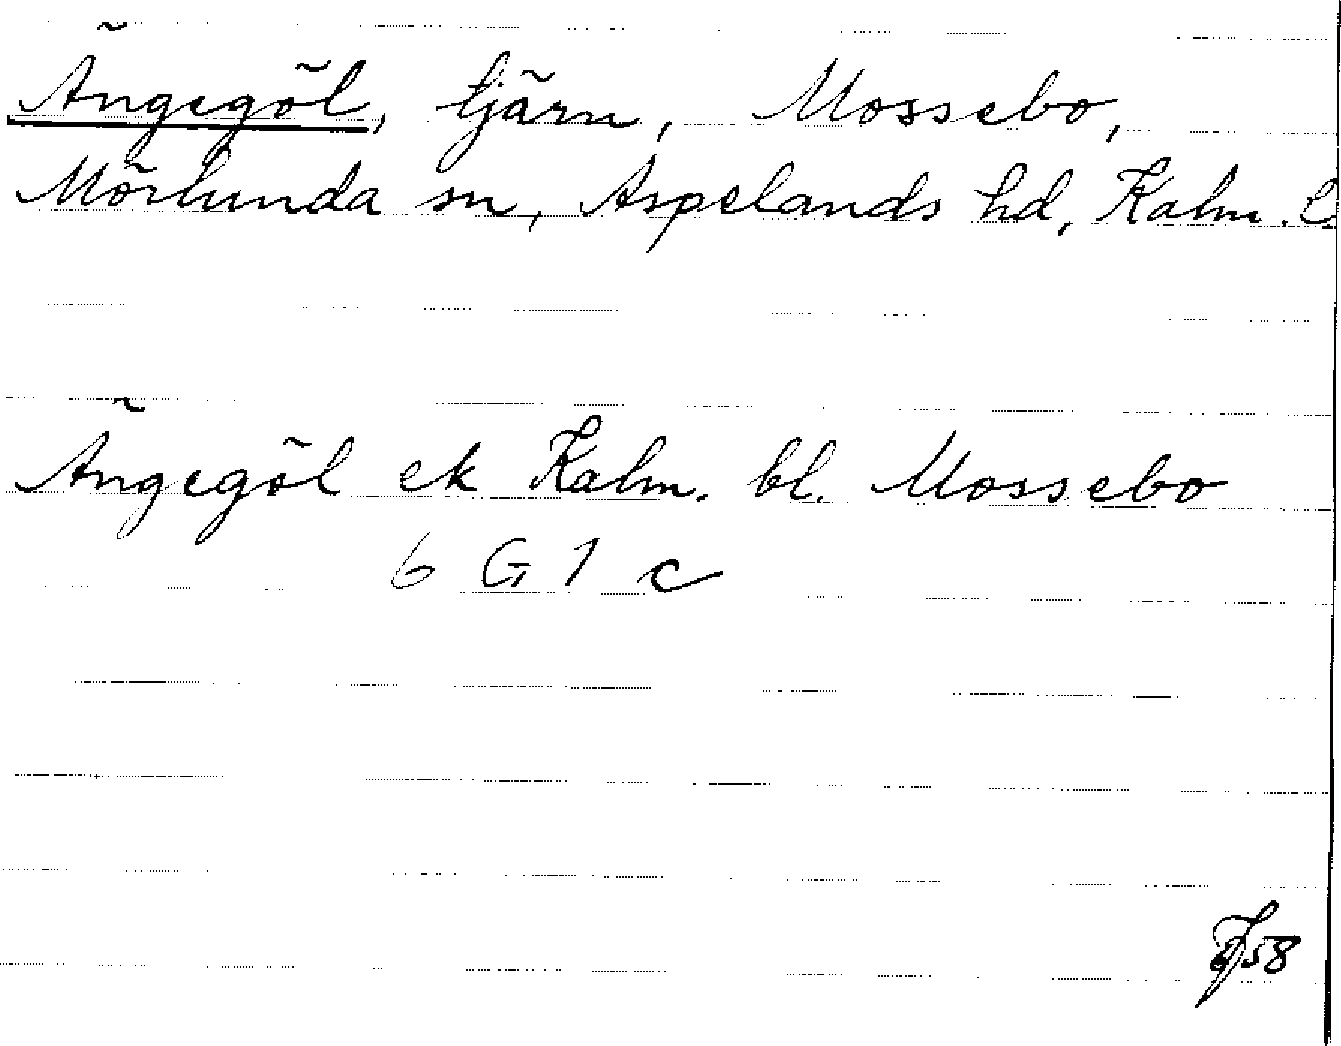 Ängegöl, tjärn, Mossebo,
Mörlunda sn, Aspelands hd, Kalm. L
Ängegöl ek Kalm. bl. Mossebo
6 G 1 c
58